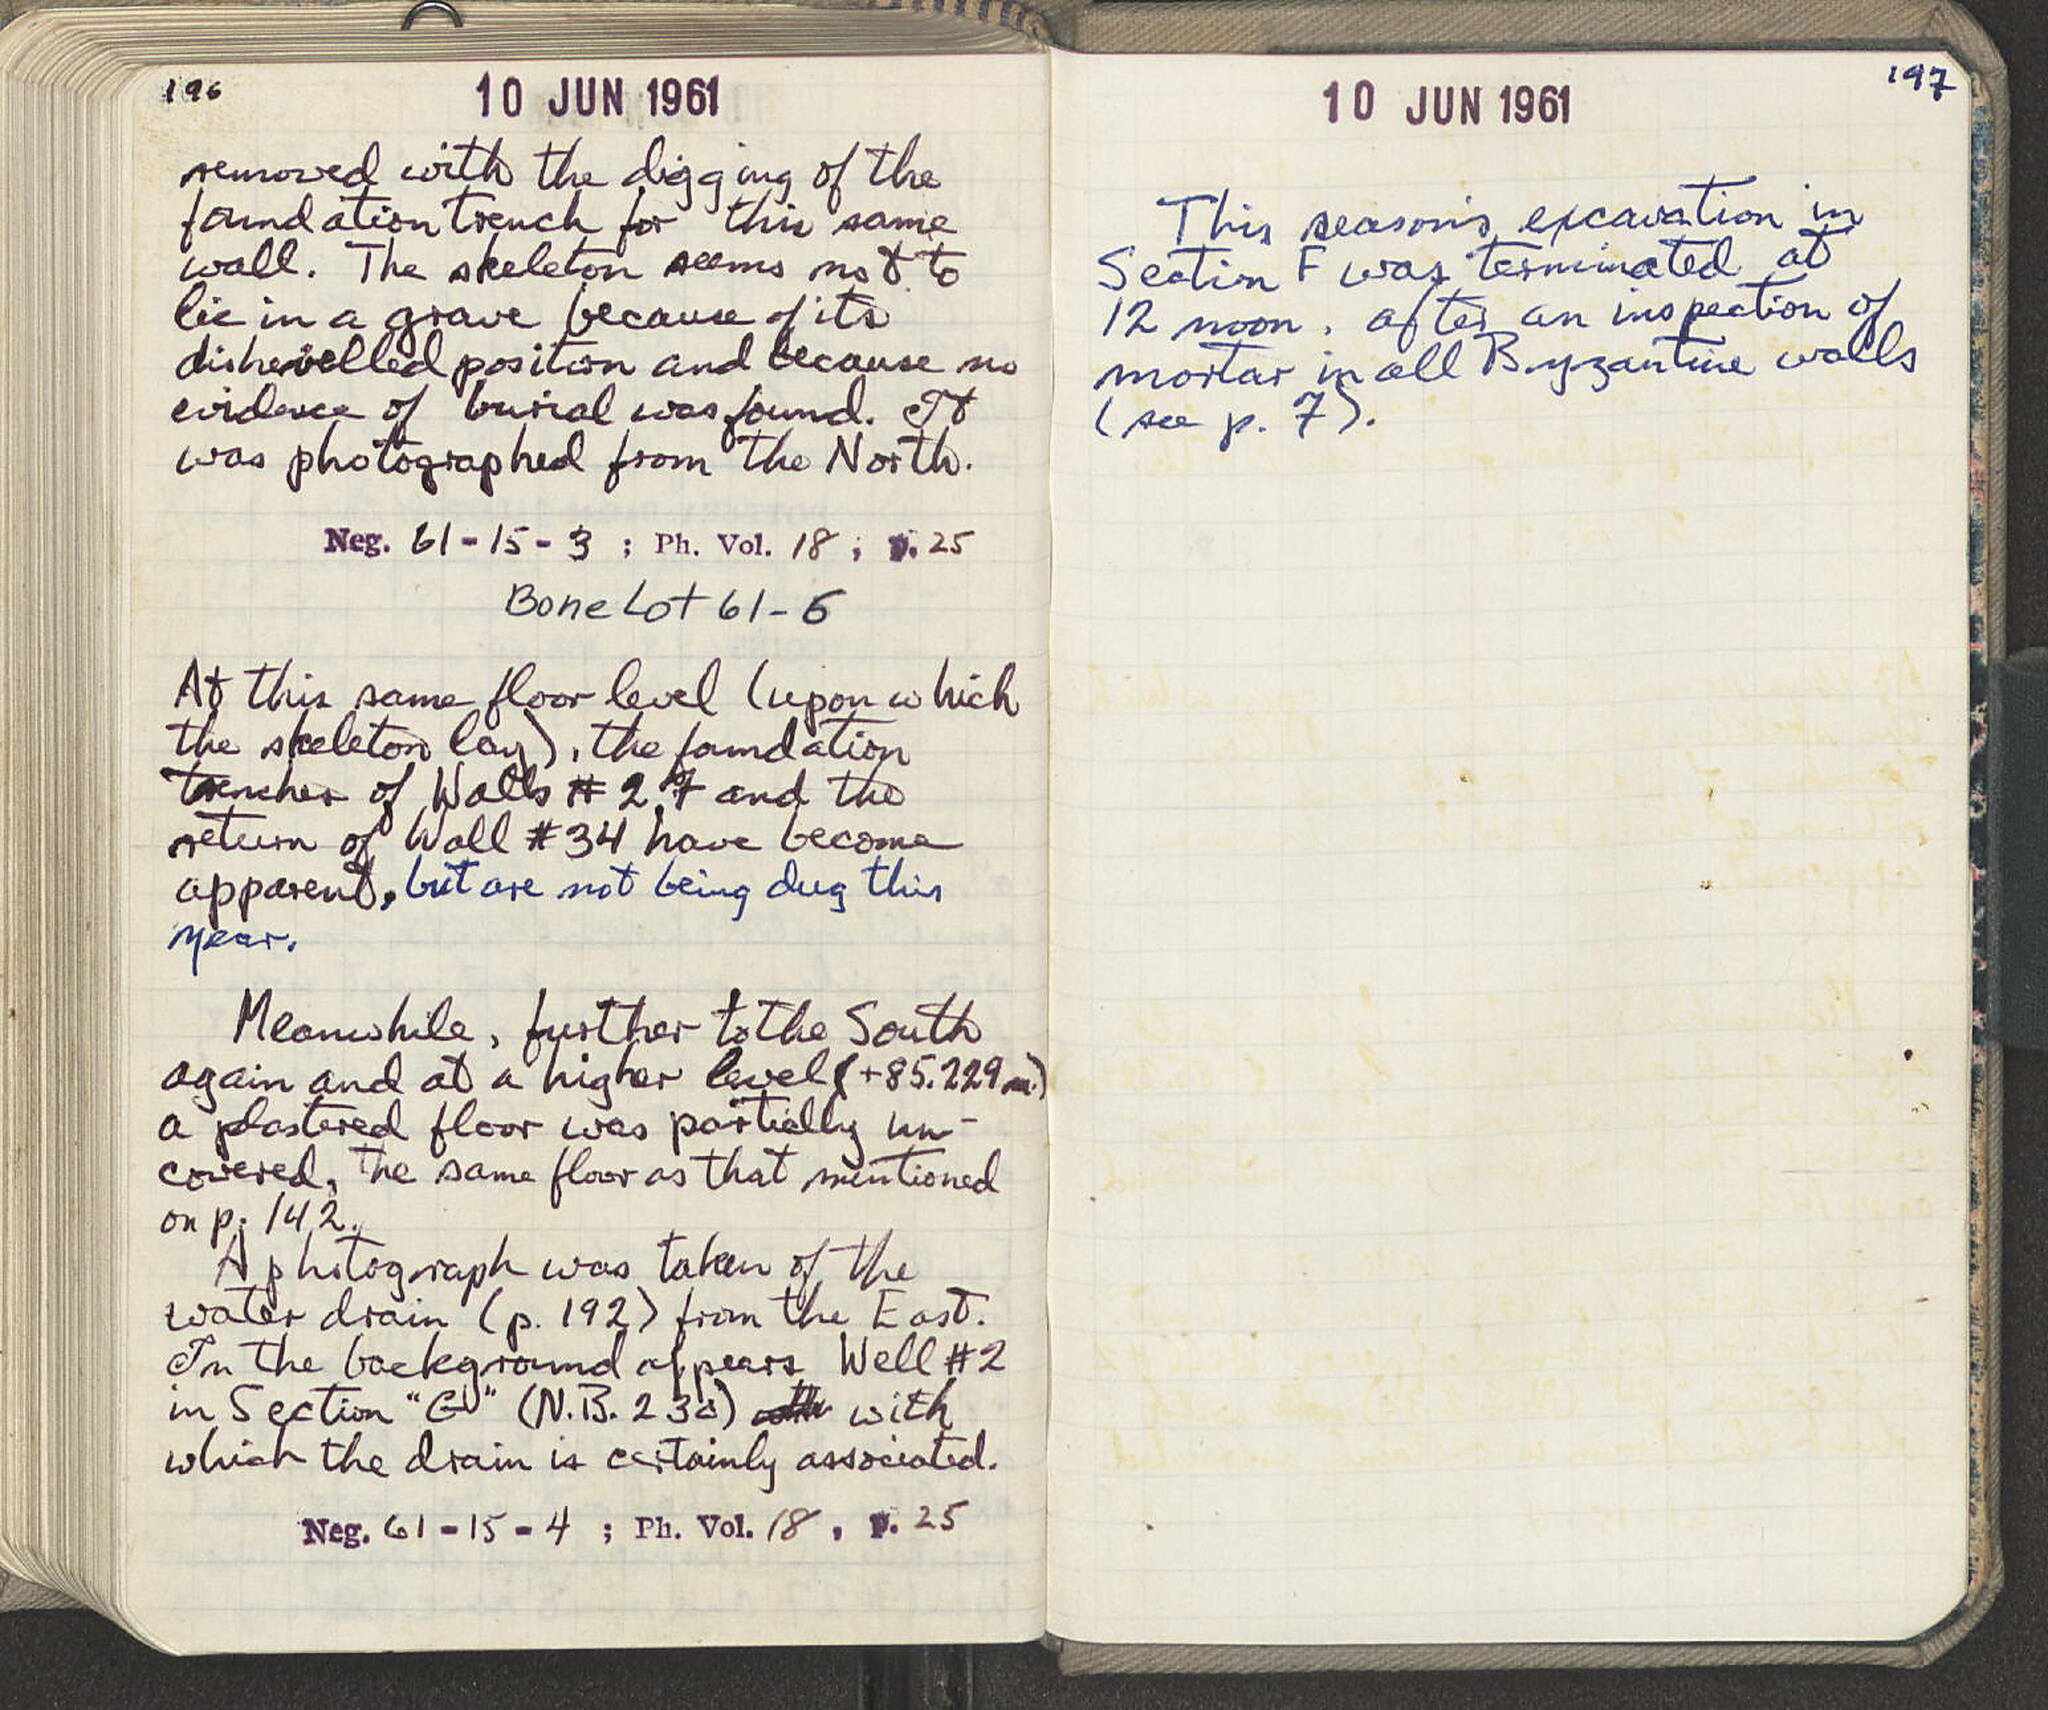 196
10 JUN 1961
removed with the digging of the
foundation trench for this same
wall. The skeleton seems not to
lie in a grave because of its
dishevelled position and because no
evidence of burial was found. It
was photographed from the North.
Neg. 61-15-3 ; Ph. Vol. 18 ; p. 25
Bone Lot 61-6
At this same floor level (upon which
the skeleton lay), the foundation
trenches of Walls #2, 7 and the
return of Wall #34 have become
apparent, but are not being dug this
year.
Meanwhile, further to the South
again and at a higher level (+85.229 m.)
a plastered floor was partially un-
covered, the same floor as that mentioned
on p. 142.
A photograph was taken of the
water drain (p. 192) from the East.
In the background appears Well #2
in Section "G" (N.B. 230) with
which the drain is certainly associated.
Neg. 61-15-4 ; Ph. Vol. 18 , p. 25
197
10 JUN 1961
This season's excavation in
Section F was terminated at
12 noon, after an inspection of
mortar in all Byzantine walls
(see p. 7).